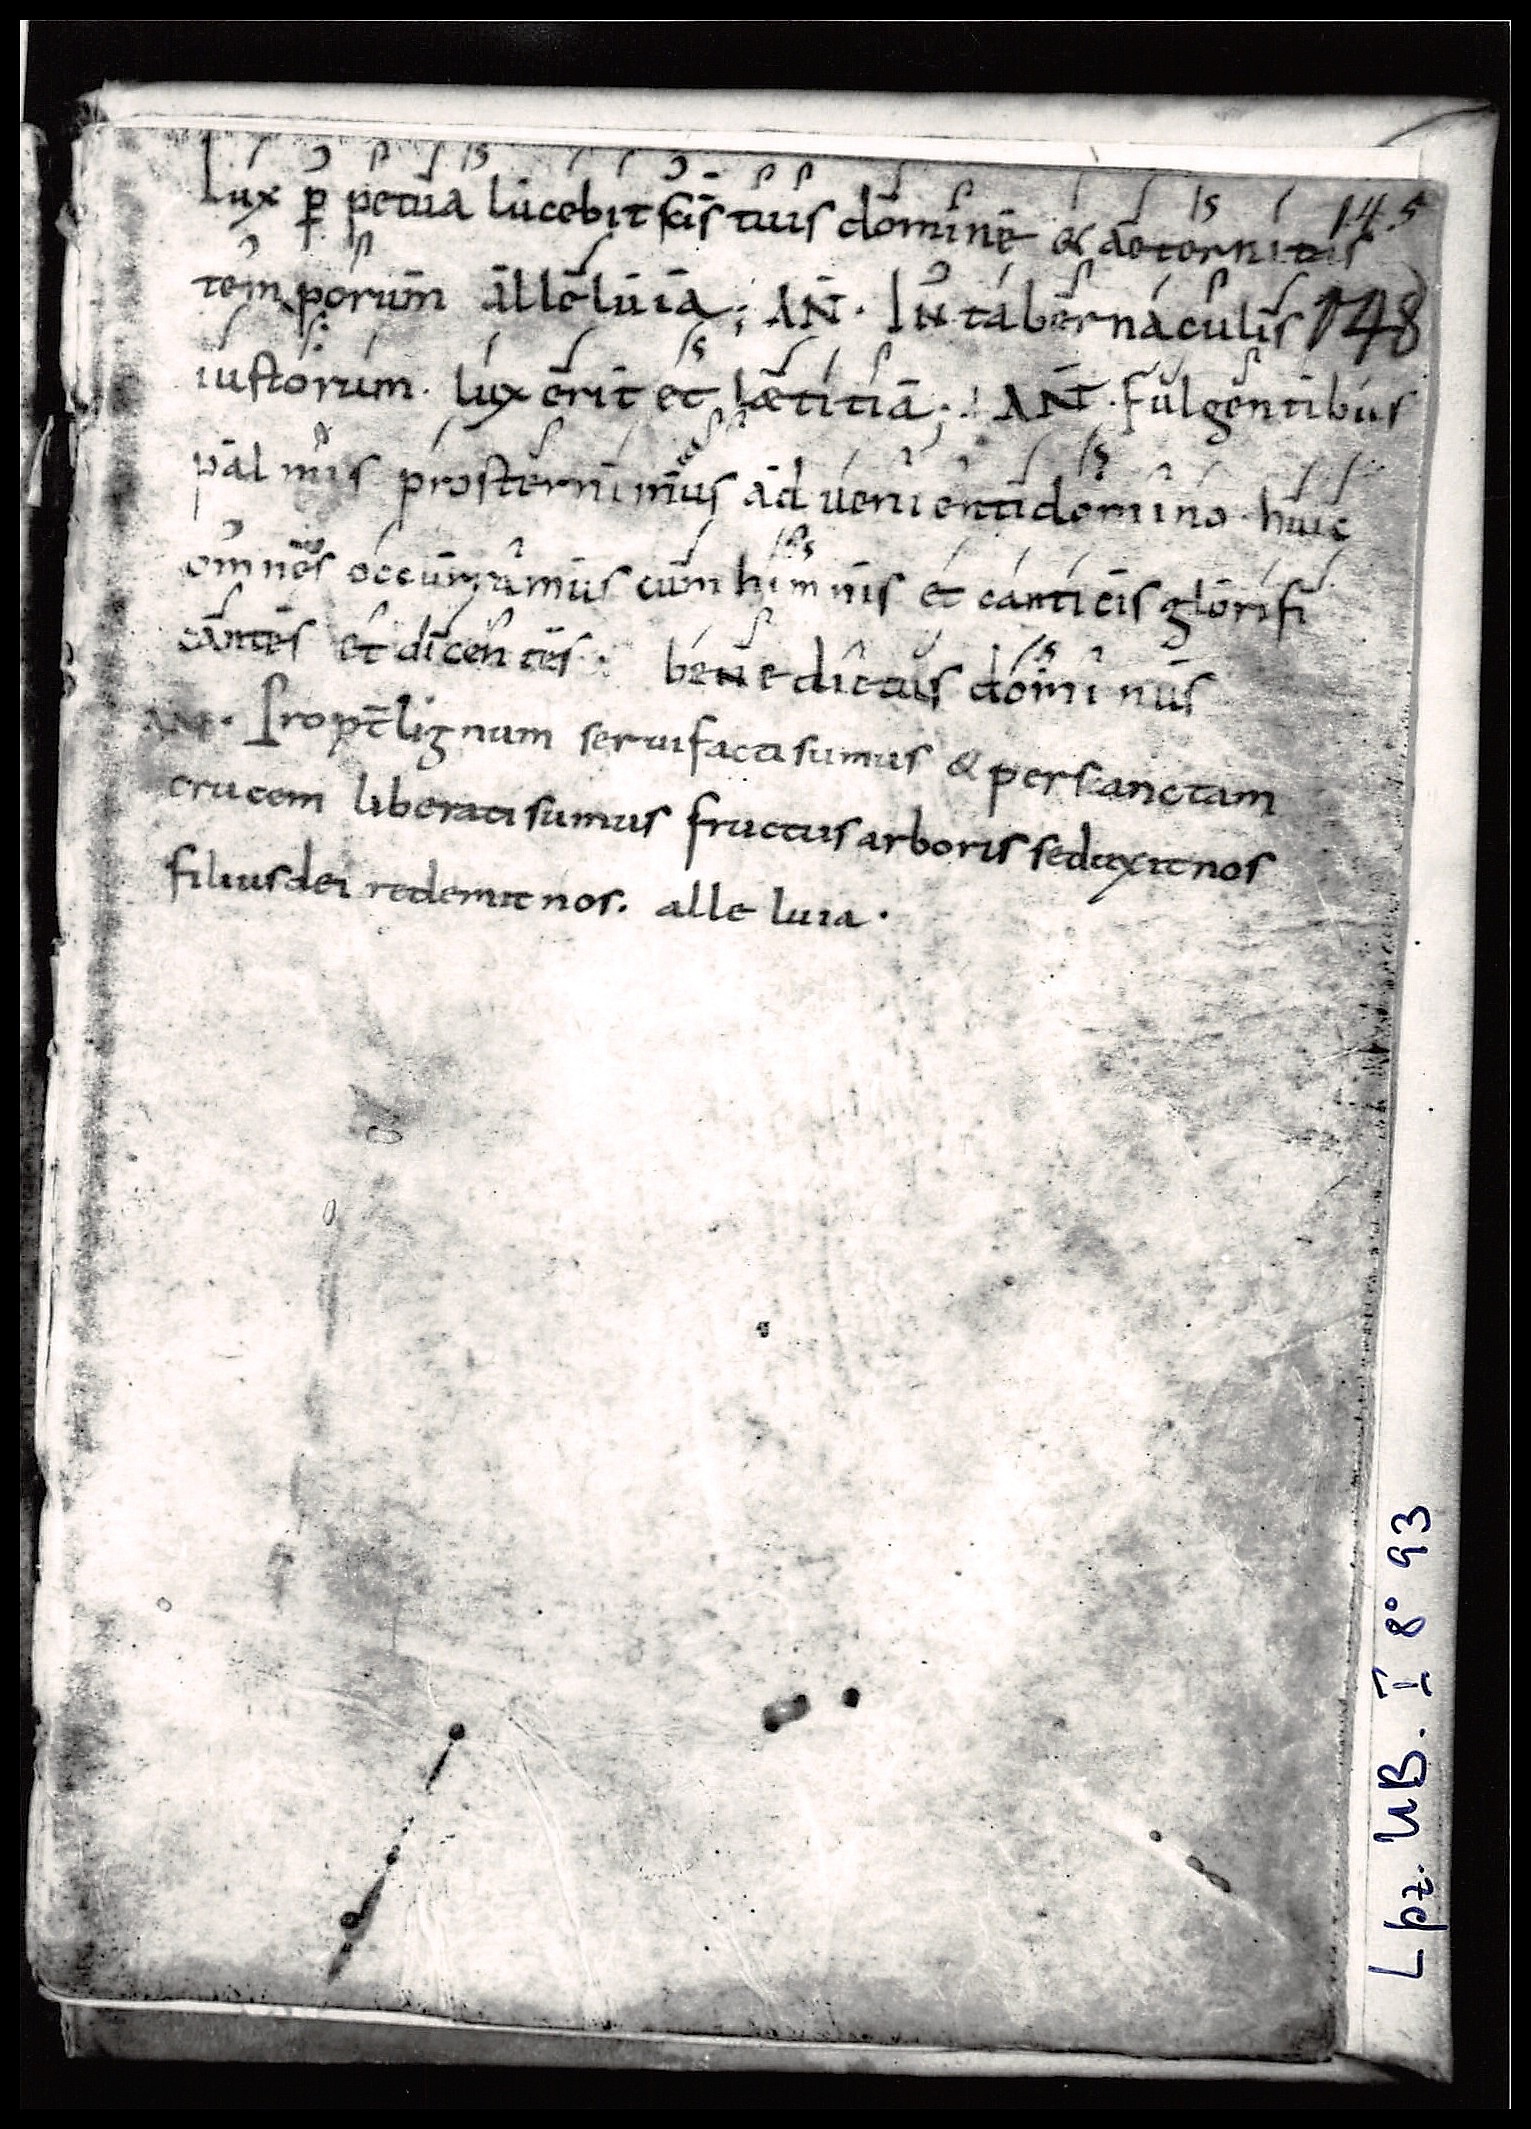 Lux p̲petua lucebit sc̄is tuis domine et aeternitas
temporum alleluia ; AN̄ . IN tabernaculis
iustorum . lux erit et laetitia ; AN̄ . Fulgentibus
palmis prosternimus advenienti domino . huic
omnes occurramus cum himnis et canticis glorifi
cantes et dicentes : benedictus dominus
ANT . Propt̄ lignum servi facti sumus & per sanctam
crucem liberati sumus fructus arboris seduxit nos
filius dei redemit nos . alleluia .
14.5
148
Lpz. UB. I 8° 93